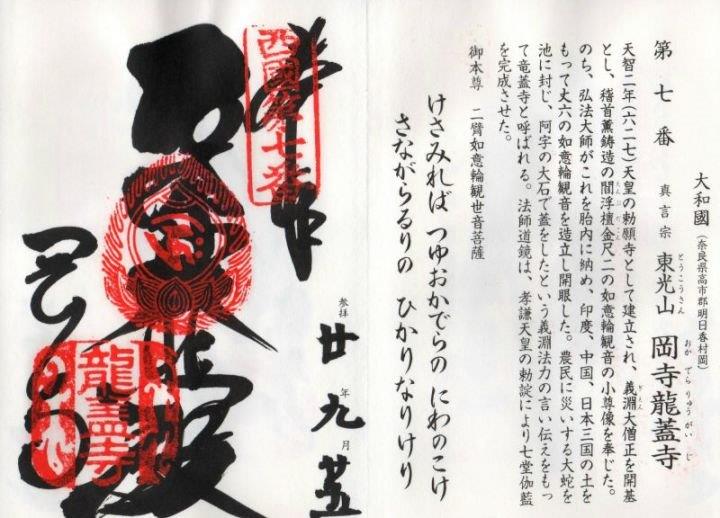 大和國（奈良県高市郡明日香村岡）
第七番 真言宗 東光山 岡寺龍蓋寺
とうこうさん おかでらりゅうがいじ
天智二年（六二七）天皇の勅願寺として建立され、義淵大僧正を開基
とし、稽首薫鋳造の閻浮檀金尺二の如意輪観音の小尊像を奉じた。
のち、弘法大師がこれを胎内に納め、印度、中国、日本三国の土を
もって丈六の如意輪観音を造立し開眼した。農民に災いする大蛇を
池に封じ、阿字の大石で蓋をしたという義淵法力の言い伝えをもっ
て竜蓋寺と呼ばれる。法師道鏡は、孝謙天皇の勅諚により七堂伽藍
を完成させた。
御本尊 二臂如意輪観世音菩薩
けさみれば つゆおかでらの にわのこけ
さながらるりの ひかりなりけり
参拝 廿年九月廿五
奉拝
西國第七番
龍蓋寺